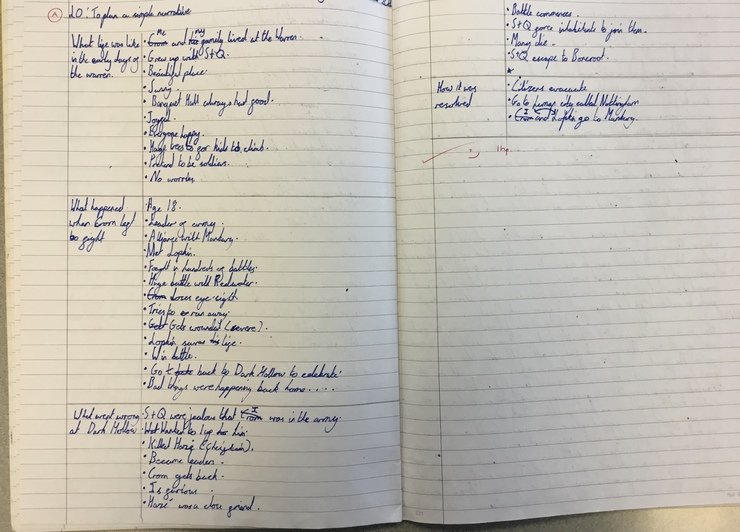 LO: To plan a simple narrative
What life was like
in the early days of
the warren.
me my
• Crom and his family lived at the Warren.
• Grew up with S+Q.
• Beautiful place.
• Sunny.
• Banquet Hall always had food.
• Joyful.
• Everyone happy.
• Huge trees for kids to climb.
• Pretend to be soldiers.
• No worries
What happened
when Crom left
to fight
• Age 18.
• Leader of army.
• Alliance with Manbury.
• Met Lophin.
• Fought in hundreds of battles.
• Huge battle with Redwater.
• Crom loses eye-sight
• Tries to run away.
• Gets wounded (severe).
• Lophin saves his life.
• Win battle.
• Go back to Dark Hollow to celebrate.
• Bad things were happening back home....
What went wrong
at Dark Hollow
• S+Q were jealous that I was in the army.
• Wanted to him.
• Killed (chieftain).
• Became leaders.
• Crom gets back.
• Is furious.
• was a close friend.
• Battle commences.
• S+Q force inhabitants to join them.
• Many die.
• S+Q escape to
How it was
resolved
• Citizens evacuate
• Go to human city called Nottingham
• Crom and Lophin go to Manbury.
1hp